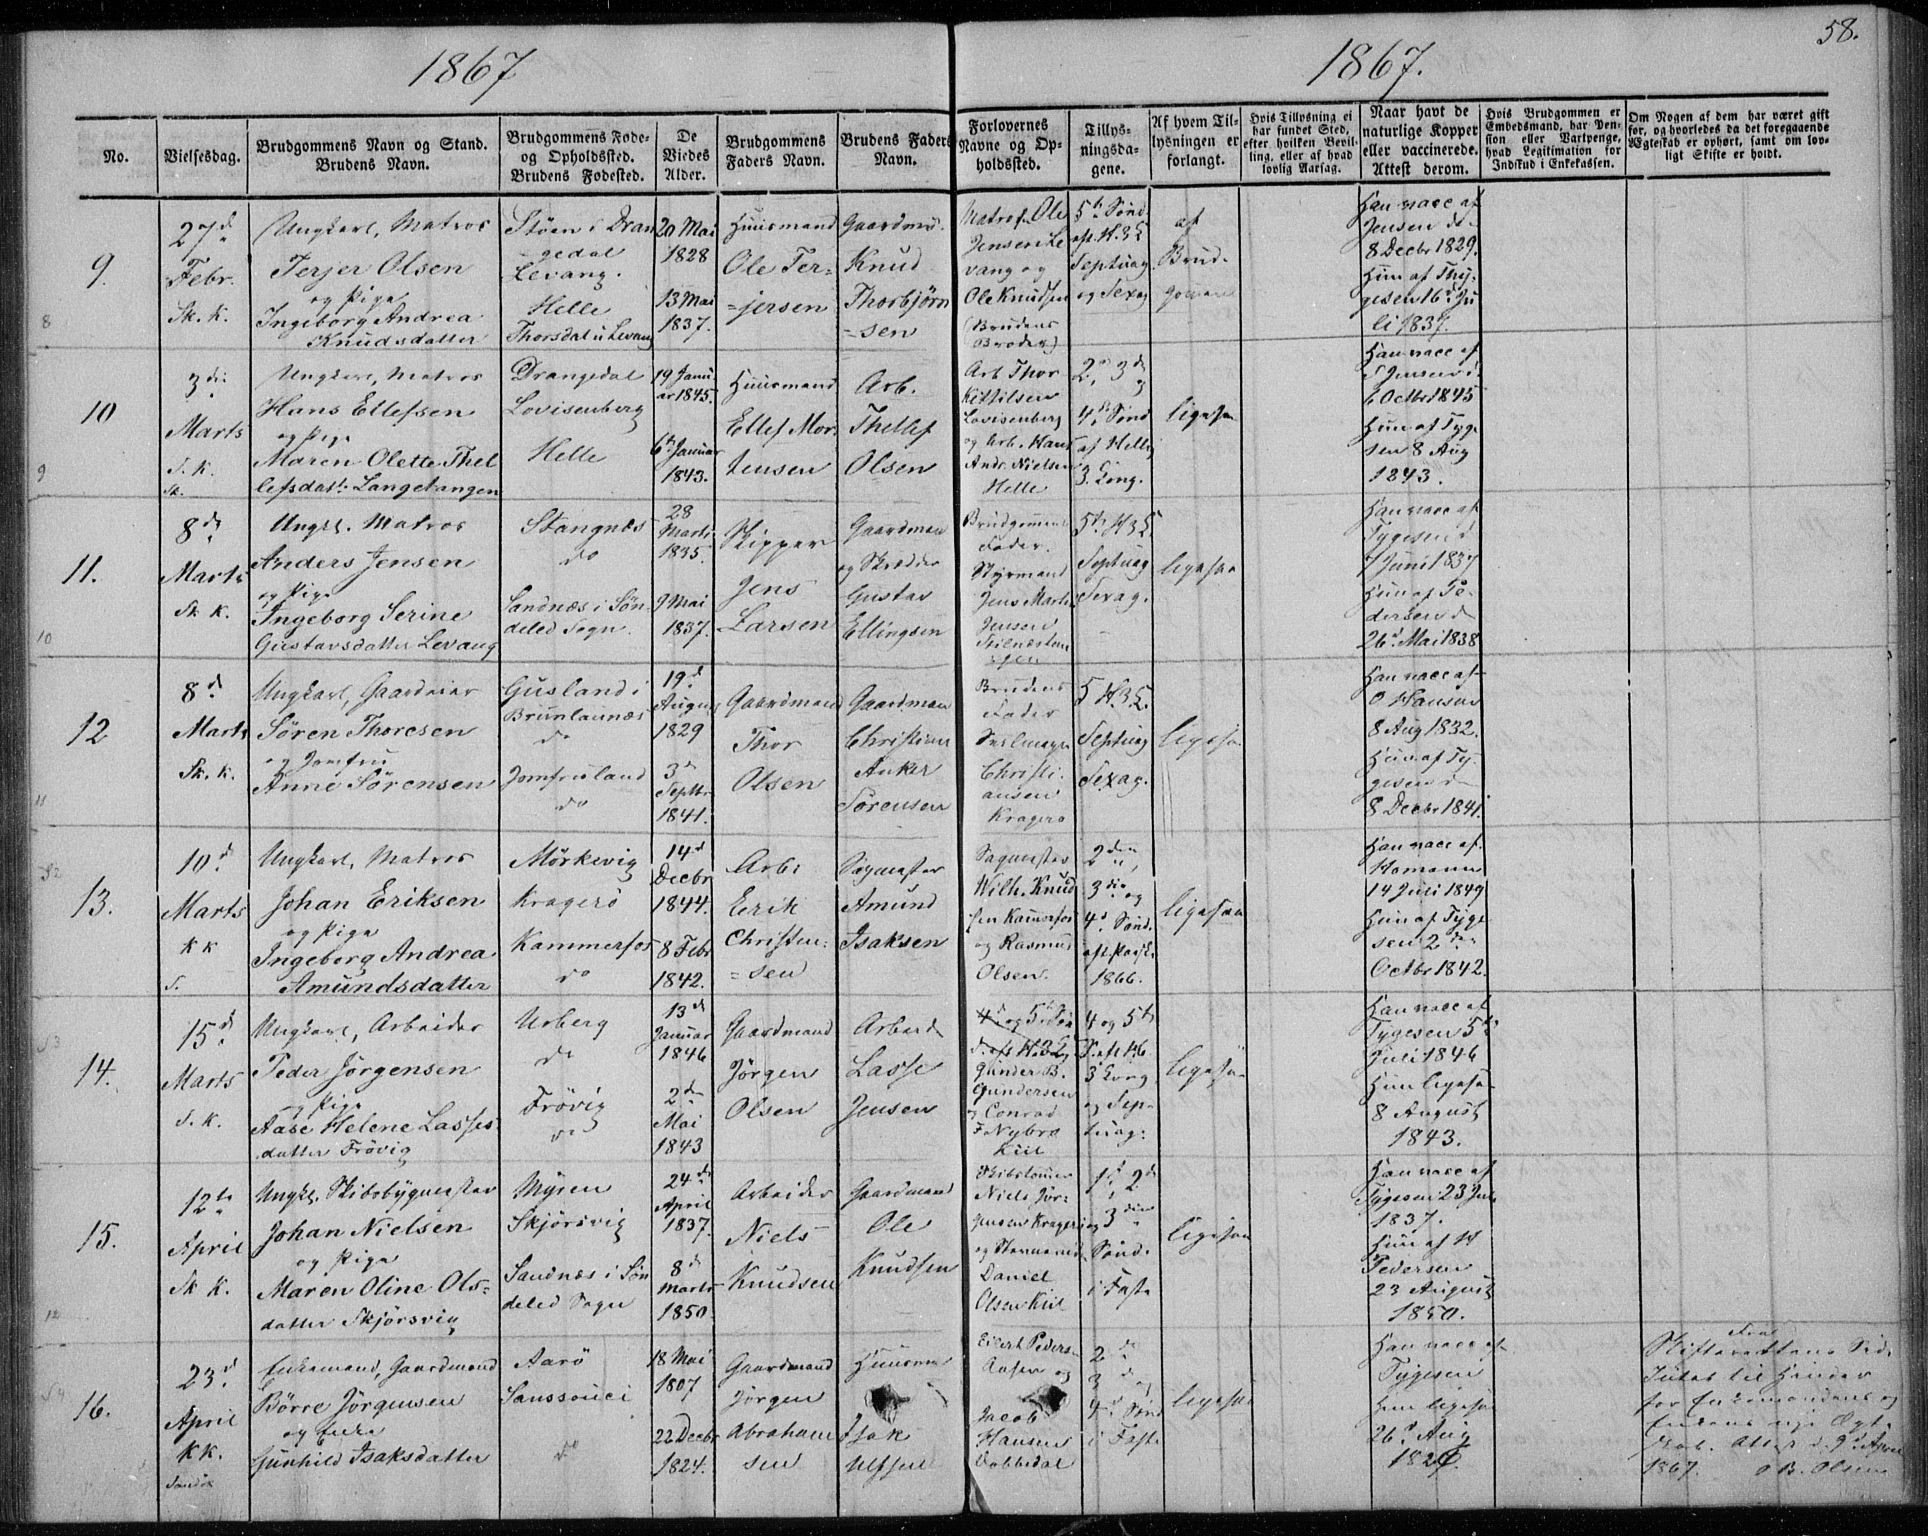 1867
1867.
58.
No.
Vielsesdag.
Brudgommens Navn og Stand.
Brudens Navn.
Brudgommens Føde-
og Opholdssted.
Brudens Fødested.
De
Viedes
Alder.
Brudgommens
Faders Navn.
Brudens Faders
Navn.
Forlovernes
Navne og Op-
holdssted.
Tillys-
ningsda-
gene.
Af hvem Til-
lysningen er
forlangt.
Hvis Tillysning ei
har fundet Sted,
efter hvilken Bevil-
ling, eller af hvad
lovlig Aarsag.
Naar havt de
naturlige Kopper
eller vaccinerede.
Attest derom.
Hvis Brudgommen er
Embedsmand, har Pen-
sion eller Vartpenge,
hvad Legitimation for
Indskud i Enkekassen.
Om Nogen af dem har været gift
før, og hvorledes da det foregaaende
Ægteskab er ophørt, samt om lov-
ligt Skifte er holdt.
9.
27d
Febr.
Sk. K.
Ungkarl, Matros
Terjer Olsen
og Pige
Ingeborg Andrea
Knudsdatter
Støen i Dran
gedal
Levang.
Helle
Thorsdal i Levang
20 Mai
1828
13 Mai
1837.
Huusmand
Ole Ter=
=jersen
Gaardmd.
Knud
Thorbjørn
=sen
Matros Ole
Jensen Le
vang og
Ole Knudsen
(Brudens
Broder)
5te Sønd.
aft. H. 3 K
Septuag.
og Sexag
af
Brud-
gomen
Han vacc af
Jensen d.
8 Decbr 1829.
Hun af Thy-
gesen 16d Ju
li 1837.
10
3die
Marts
S. K.
Sk.
Ungkarl, Matros
Hans Ellefsen
og Pige
Maren Olette Thel
lefsdatt. Langetangen
Drangedal
Lovisenberg
Helle
19 Janu
ar 1845.
6te Januar
1843.
Huusmand
Ellef Mor-
tensen
Arb.
Thellef
Olsen
Arb Thor
Kittilsen
Lovisenberg
og Arb. Hans
Andr. Nielsen
Helle
2d, 3d
og
4de Sønd
af Hellig
3 Kong.
ligesaa
Han vacc af
Jensen d.
6 Octbr 1845
Hun af Tyge
sen 8 Aug
1843.
11.
8de
Marts
Sk K.
Ungkl. Matros
Anders Jensen
og Pige
Ingeborg Serine
Gustavsdatter Levang
Stangnæs
do
Sandnæs i Søn
deled Sogn.
28
Marts
1835.
9 Mai
1837.
Skipper
Jens
Larsen
Gaardman
og Skredder
Gustav
Ellingsen
Brudgommens
Fader.
Styrmand
Jens Martin
Jensen
5te H 3 K.
Septuag
Sexag.
ligesaa
Han vacc af
Tygesen d
7 Juni 1837
Hun af Pe
dersen d
26d Mai 1838
12
8d
Marts
Sk. K.
Ungkarl, Gaardeier
Søren Thoresen
og Jomfru
Anne Sørensen
Gusland i
Brunlaunæs
do
Jomfruland
do
19d
August
1829
3de
Septbr
1841.
Gaardmand
Thor
Olsen
Gaardman
Christian
Anker
Sørensen
Brudens
Fader
Christi-
ansen
Kragerø
5 H 3 K.
Septuag
Sexag.
ligesaa
Han vacc af
O Hansen
8 Aug 1832.
Hun af Ty-
gesen d
8 Decbr 1841.
13.
10d
Marts
KK
S.
Ungkarl, Matros
Johan Eriksen
og Pige
Ingeborg Andrea
Amundsdatter
Mørkevig
Kragerö
Kammerfos
do
14d
Decbr
1844.
8 Febr
1842.
Arb.
Erik
Christen=
=sen
Sagmester
Amund
Isaksen
Sagmester
Wilh. Knud
sen Kamerfos
og Rasmus
Olsen.
2den,
3die og
4d Sønd.
aft. Paask.
1866.
ligesaa
Han vacc af
Homann
14 Juli 1849
Hun af Tyge
sen 2den
Octbr 1842.
14.
15d
Marts
S. K.
Ungkarl, Arbeider
Peder Jørgensen
og Pige
Aase Helene Lasses
datter Frövig
Urberg
do
Frövig
do
13d
Januar
1846
2den
Mai
1843
Gaardmand
Jørgen
Olsen
Arbeid
Lasse
Jensen
Gunder B.
Gundersen
og Conrad
F Nybro
Kiil
4 og 5te
S. aft H.
3 Kong
og Sep-
tuag:
ligesaa
Han vacc af
Tygesen 5te
Juli 1846
Hun ligesaa
8 August
1843.
15.
12te
April
Sk K.
Ungkl. Skibsbygmester
Johan Nielsen
og Pige
Maren Oline Ols=
datter Skjörsvig
Myren
Skjörsvig
Sandnæs i Søn
deled Sogn
24de
April
1837.
8d
Marts
1850.
Arbeider
Niels
Knudsen
Gaardmand
Ole
Knudsen
Skibstømer
Niels Jør-
gensen Kragerø
Daniel
Olsen Kiil
1d, 2d
og 3die
Sønd.
i Faste
ligesaa
Han vacc af
Tygesen 23 Juli
1837.
Hun af H
Pedersen
23 August
1850.
16.
23d
April
KK.
Enkemand, Gaardmand
Börre Jörgensen
og Enke
Gunhild Isaksdatter
Aarö
Sanssouci
do
18 Mai
1807
22 Decbr
1824.
Gaardmand
Jörgen
Abraham
sen
Huusman
Isak
Ulfsen
Eilert Peders-
og
Jacob
Hansen
Dobbedal
2d
3 og
4d Sønd
i Faste
ligesaa
Han vacc af
Tygesen
Hun ligesaa
26d Aug
Fra
Skifterettens
for Enkemandens og
Enkens nye Ægte
skab. Attest d. 9d April
1867. O B. Olsen